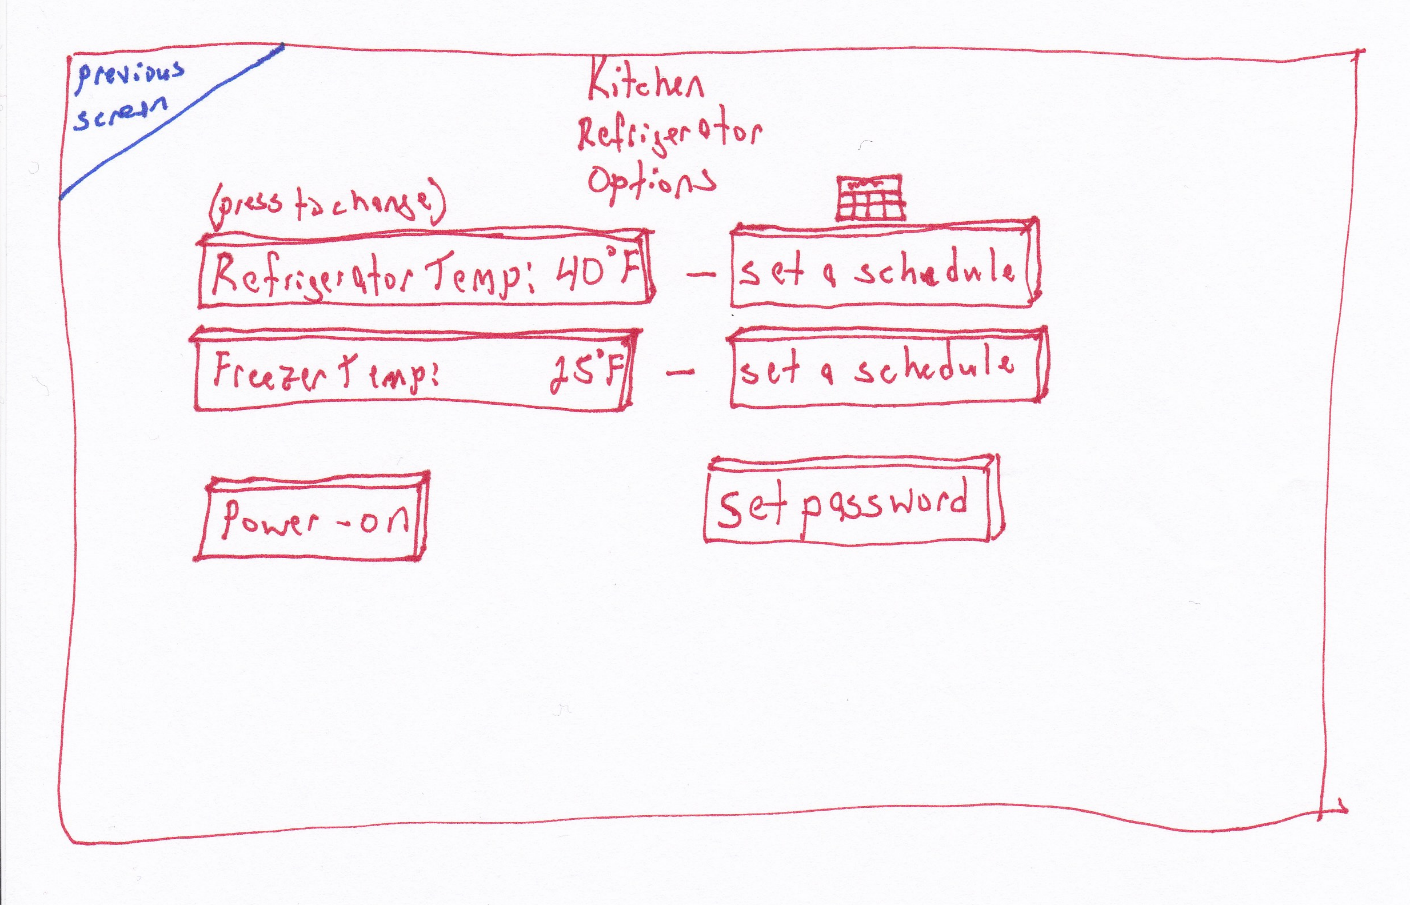 previous
screen
Kitchen
Refrigerator
Options
(press to change)
Refrigerator Temp: 40°F - set a schedule
Freezer Temp: 25°F - set a schedule
Power-on
set password